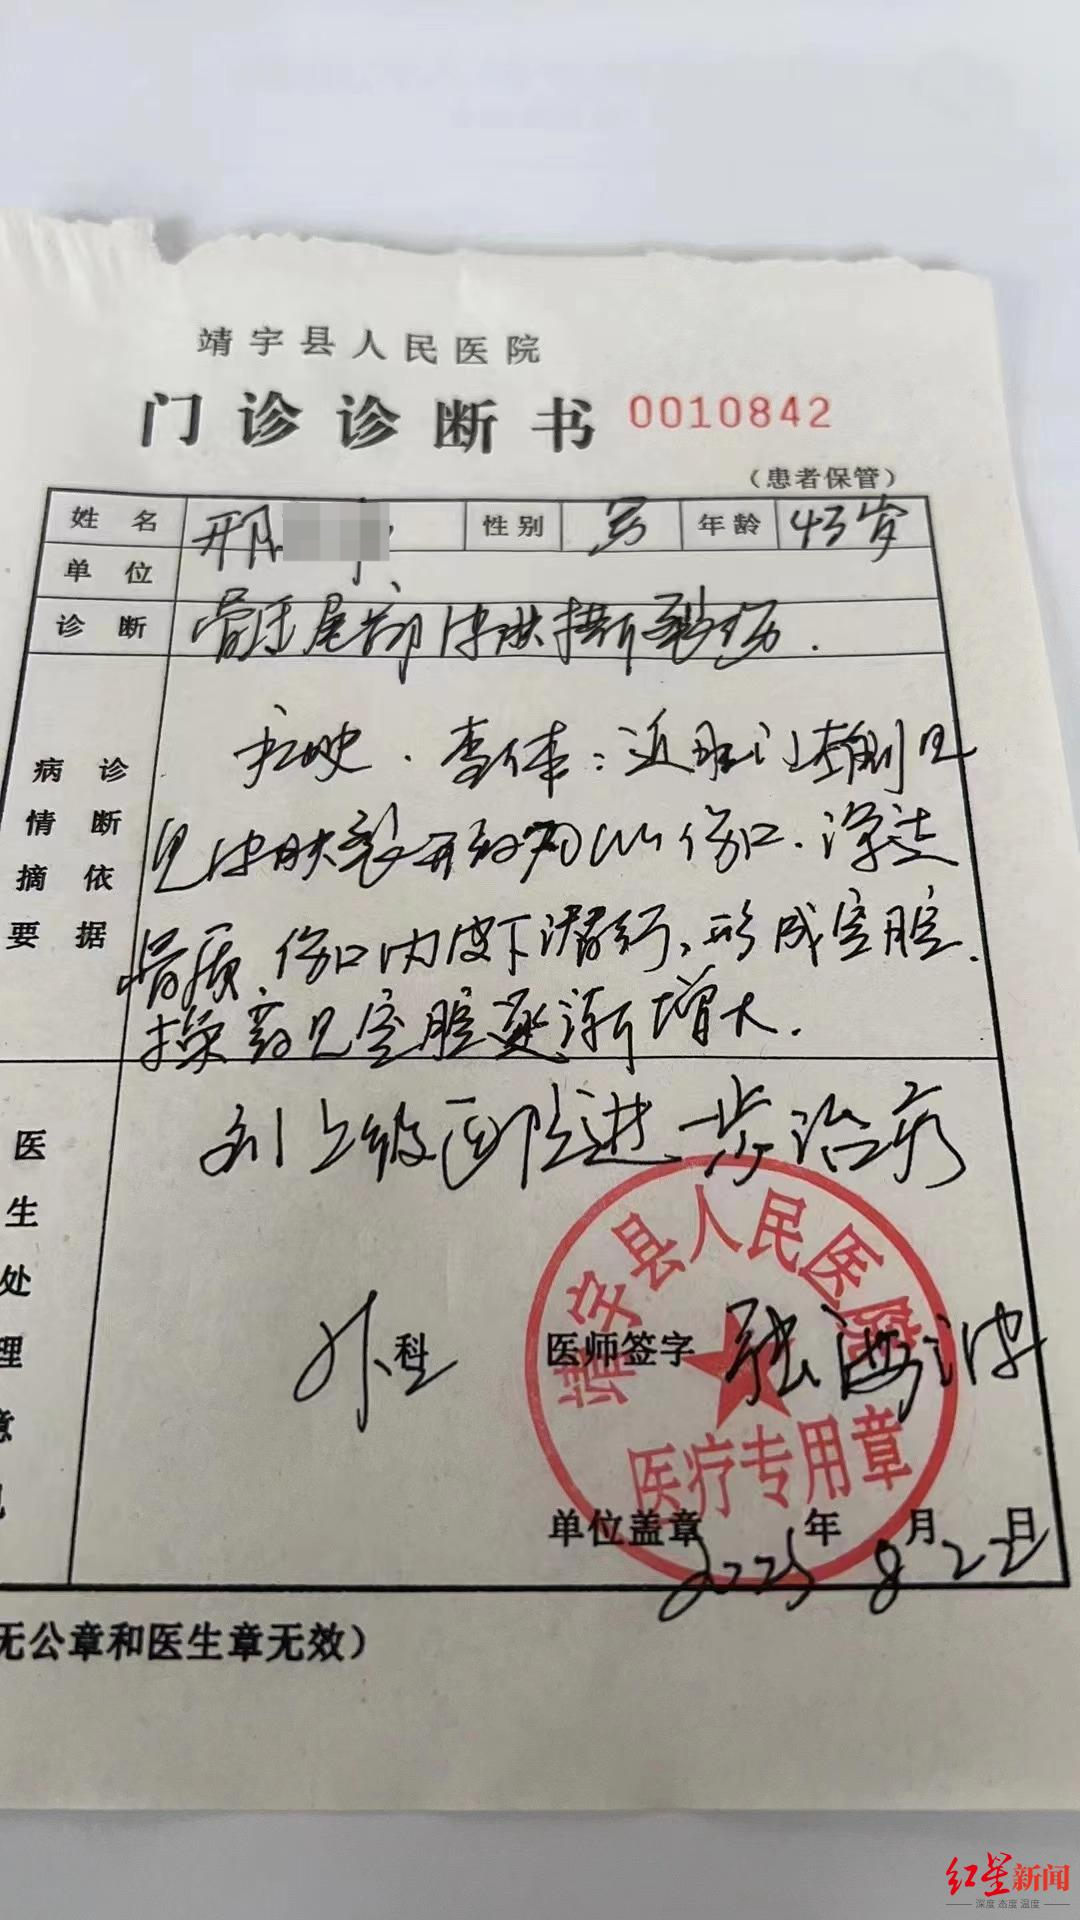 靖宇县人民医院
门诊诊断书 0010842
（患者保管）
姓名 邢 性别 男 年龄 43岁
单位
诊断 骶尾部皮肤挫裂伤.
病情摘要 诊断依据
查体：近肛门左侧
见皮肤裂开 伤口.深达
骨质.伤口内皮下潜行,形成空腔.
换药见空腔逐渐增大.
医生处理意见
到上级医院进一步治疗
外科 医师签字 张海波
靖宇县人民医院
医疗专用章
单位盖章 2025年8月22日
无公章和医生章无效）
红星新闻
深度 态度 温度